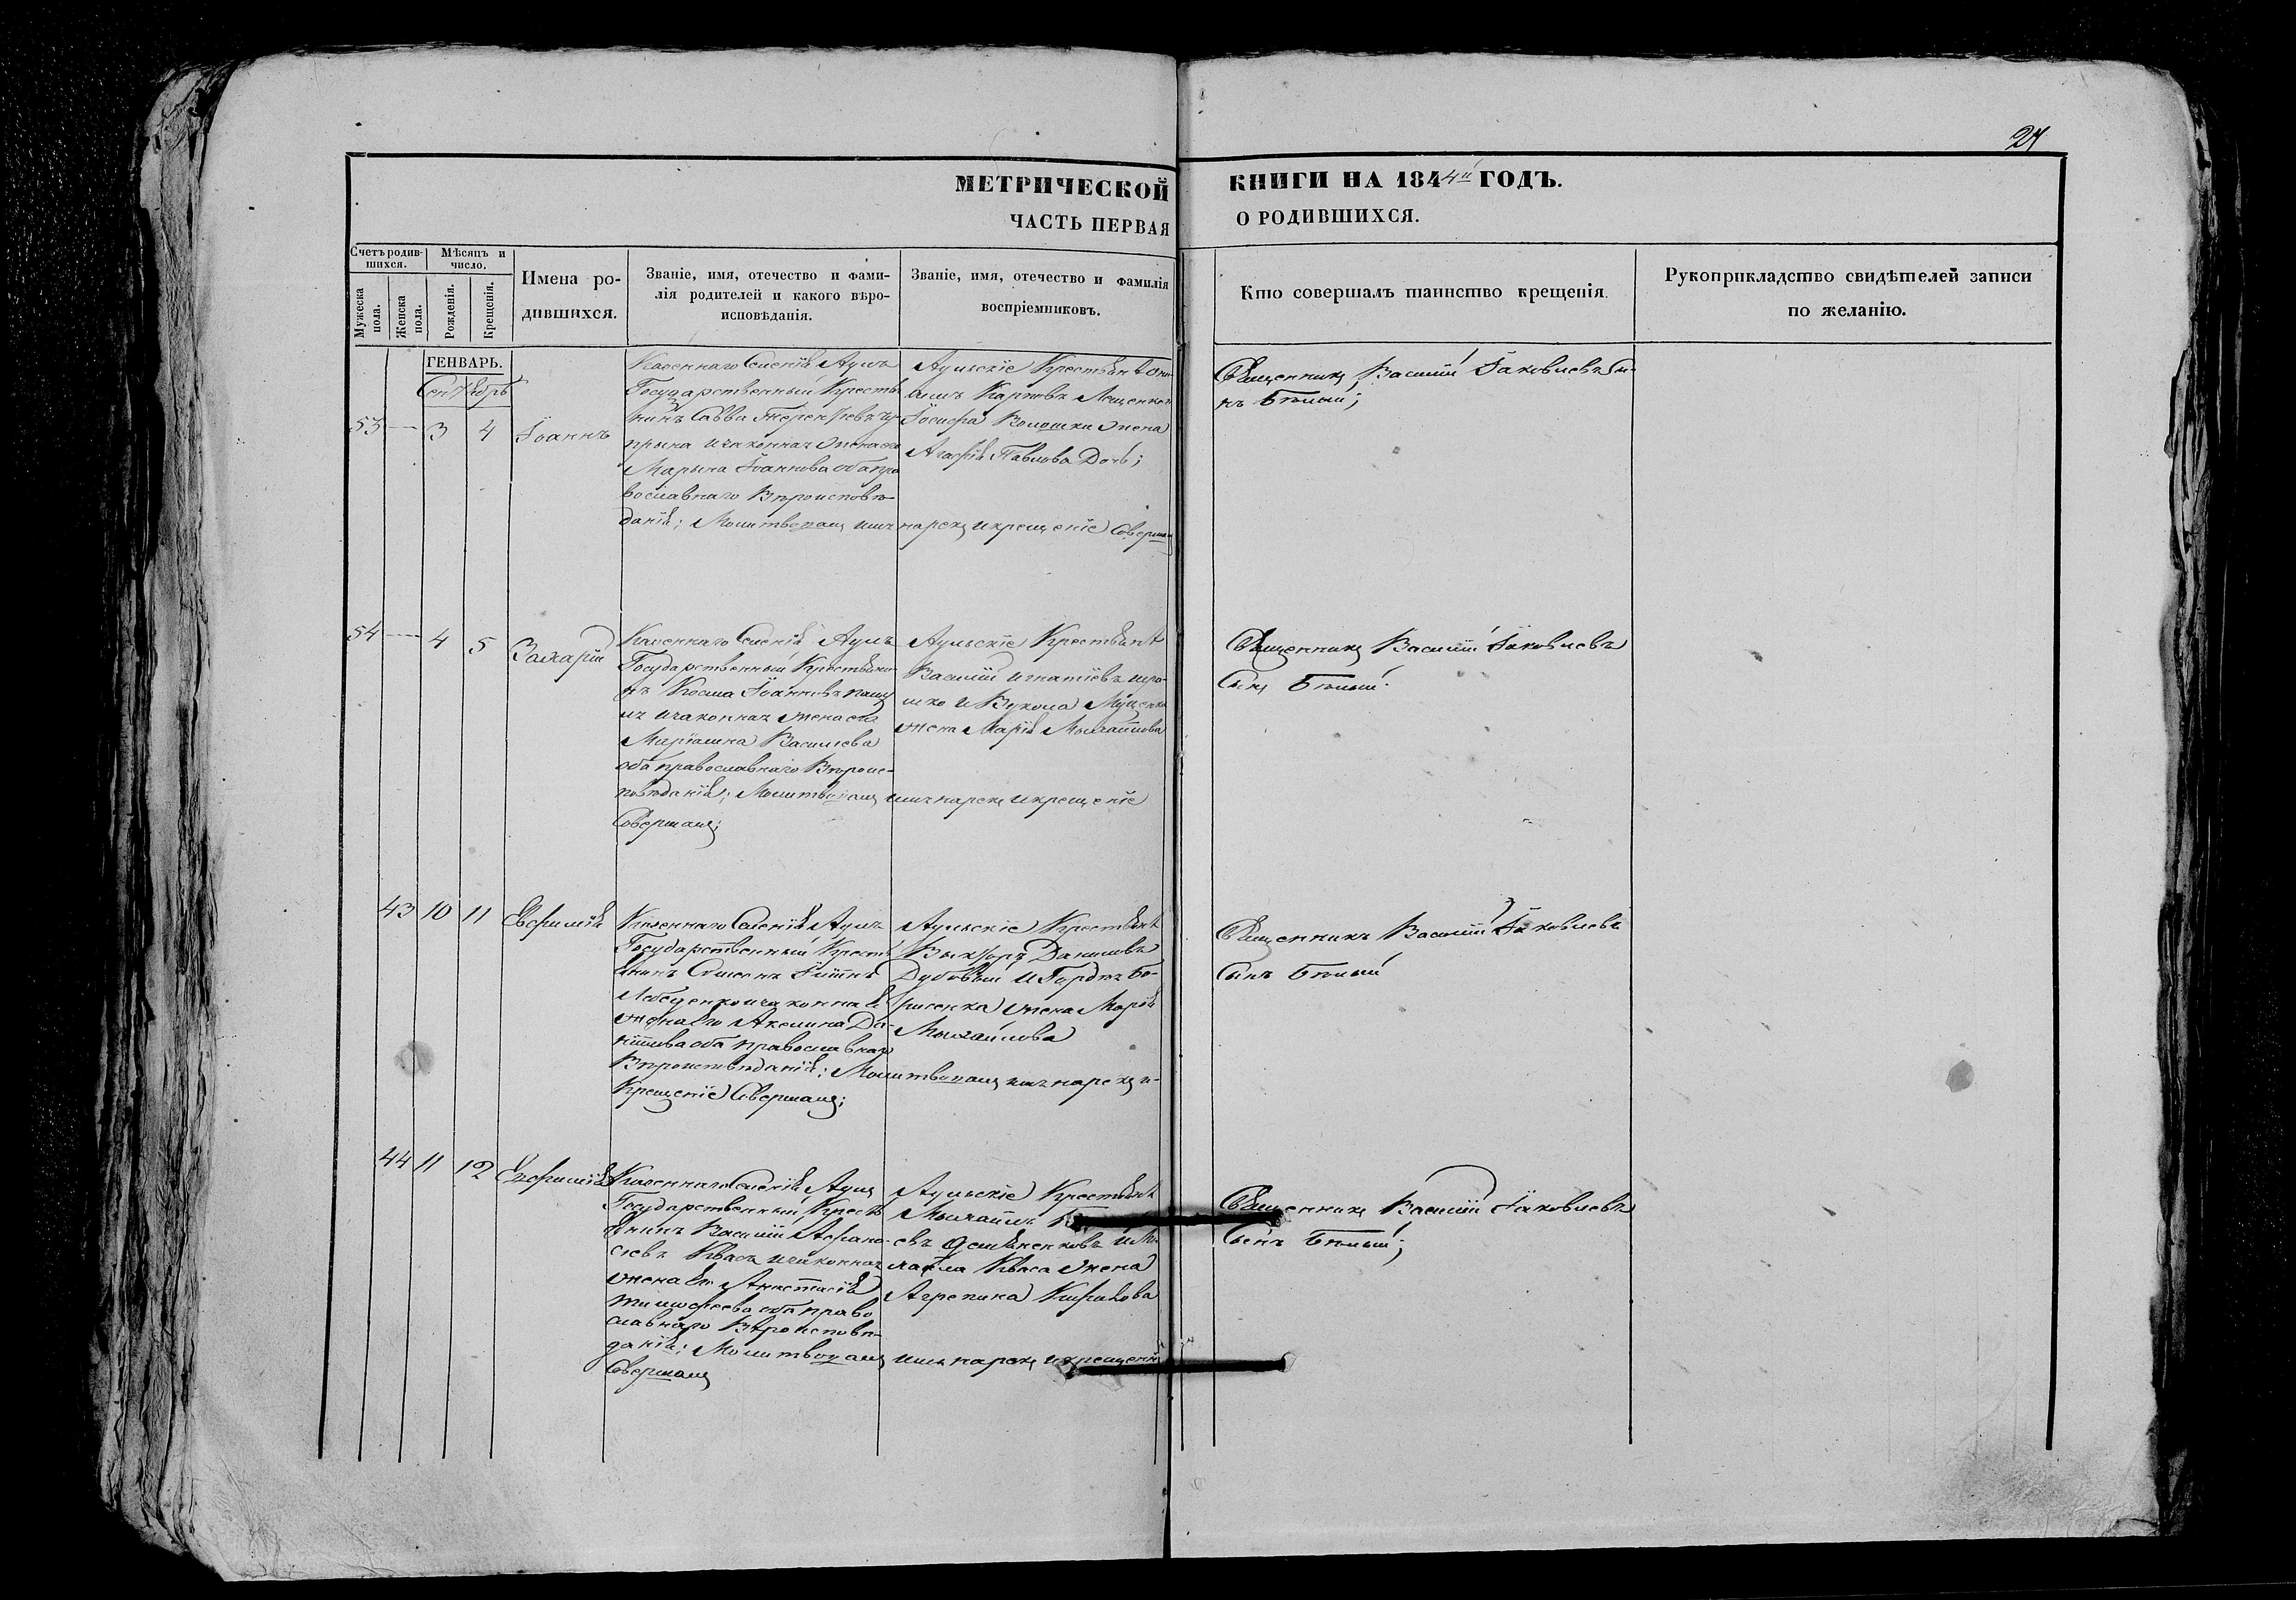 27
МЕТРИЧЕСКОЙ КНИГИ НА 1844й ГОДЪ.
ЧАСТЬ ПЕРВАЯ О РОДИВШИХСЯ.
Счетъ родив-
шихся.
Мѣсяцъ и
число.
Мужеска
пола.
Женска
пола.
Рожденія.
Крещенія.
Имена ро-
дившихся.
Званіе, имя, отечество и фами-
лія родителей и какого вѣро-
исповѣданія.
Званіе, имя, отечество и фамилія
воспріемниковъ.
Кто совершалъ таинство крещенія.
Рукоприкладство свидѣтелей записи
по желанію.
ГЕНВАРЬ.
Сентябрь
53 3 4 Іоаннъ
Казеннаго Селенія Аулъ
Государственный Крестья
нинъ Савва
и законная жена его
Марына Іоаннова оба пра
вославнаго Вѣроисповѣ
данія; Молитвовалъ имя нарекъ и крещеніе Соверша
Аульскіе Крестьяне
Карповъ
Іосифа Волошки жена
Агафія Павлова Дочь;
Священникъ Василій Іаковлевъ Сы-
нъ Бѣлый;
54 4 5 Захарій
Казеннаго Селенія Аулъ
Государственный Крестьяни-
нъ Косма Іоанновъ
и законная жена его
Маріамна Василиева
оба православнаго Вѣроис-
повѣданія; Молитвовалъ имя нарекъ и крещеніе
Совершалъ;
Аульскіе Крестьяне
Василій Игнатіевъ
и Вукола
жена Марія Михайлова
Священникъ Василій Іаковлевъ
Сынъ Бѣлый.
43 10 11 Евфимія
Казеннаго Селенія Аулъ
Государственный Кресть
янинъ Симеонъ
и законная
жена Его Акелина Да-
ніилова оба православнаго
Вѣроисповѣданія; Молитвовалъ имя нарекъ и-
Крещеніе Совершалъ;
Аульскіе Крестьяне
Даниловъ
Дубовый и Гордѣя Бо-
рисенка жена Марія
Михайлова
Священникъ Василій Іаковлевъ
Сынъ Бѣлый
44 11 12 Евфимія
Казеннаго Селенія Аулъ
Государственный Кресть
янинъ Василій Афана-
сіевъ Квасъ и законная
жена Его Анастасія
Тимофеева оба право
славнаго Вѣроисповѣ-
данія; Молитвовалъ имя нарекъ и крещеніе
Совершалъ
Аульскіе Крестьяне
Михаилъ
евъ Демьяненковъ и Ми-
хаила Кваса жена
Агрепина
Священникъ Василій Іаковлевъ
Сынъ Бѣлый;